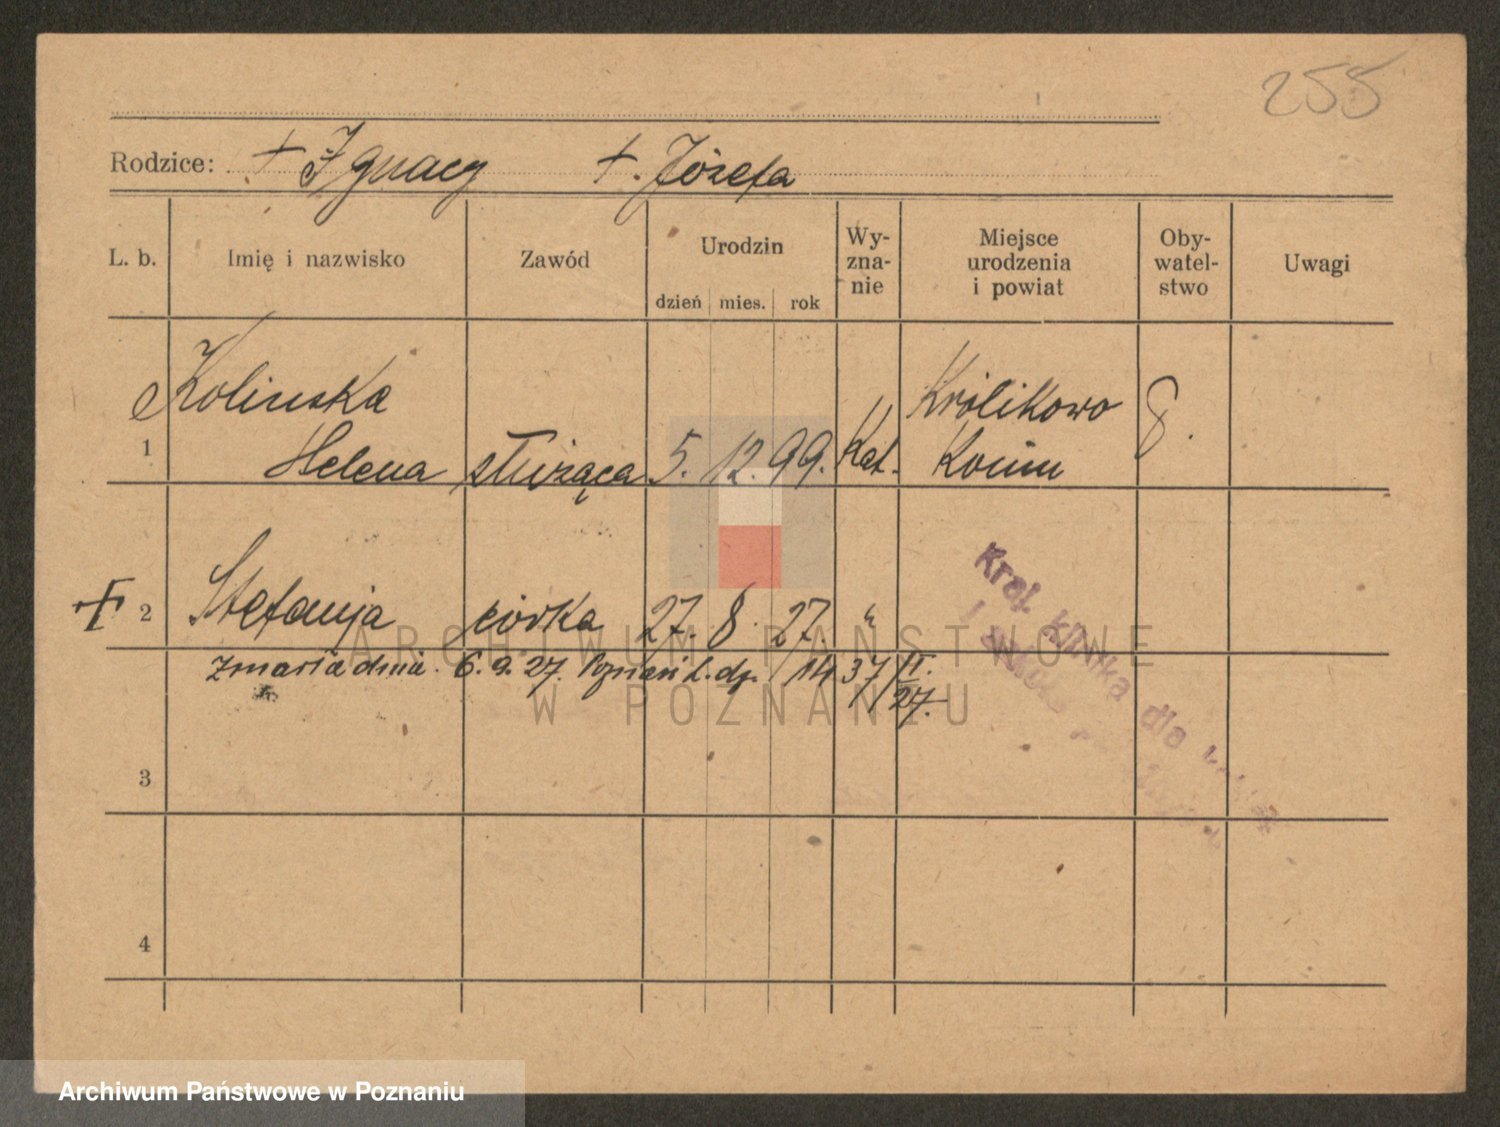 255
Rodzice: + Ignacy +. Józefa
L. b. Imię i nazwisko Zawód Urodzin dzień mies. rok Wy-zna-nie Miejsce urodzenia i powiat Oby-watel-stwo Uwagi
Kolinska Królikowo
1 Helena służąca 5. 12. 99. Kat. Konin
+ 2 Stefanja córka 27. 8. 27. "
zmarła dnia 6. 9. 27. Poznań L. dz. 1437/II.
27.
3
4
Kraj. klinika dla
ARCHIWUM PAŃSTWOWE
W POZNANIU
Archiwum Państwowe w Poznaniu